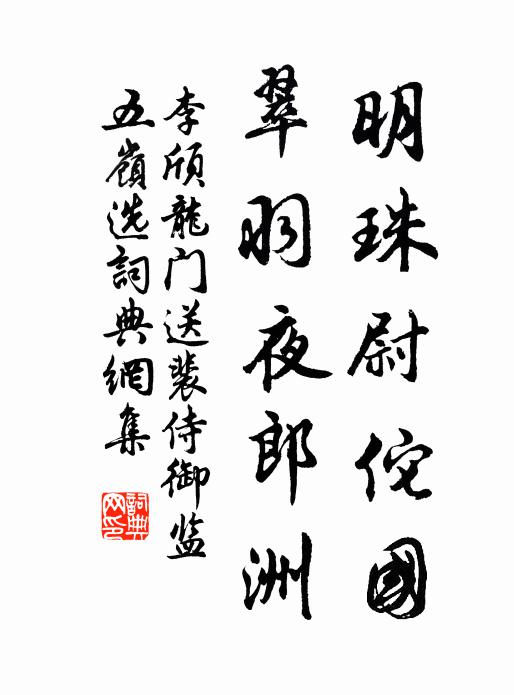 明珠尉佗國
翠羽夜郎洲
李頎龍门送裴侍御监
五嶺选詞典網集
詞典
网印